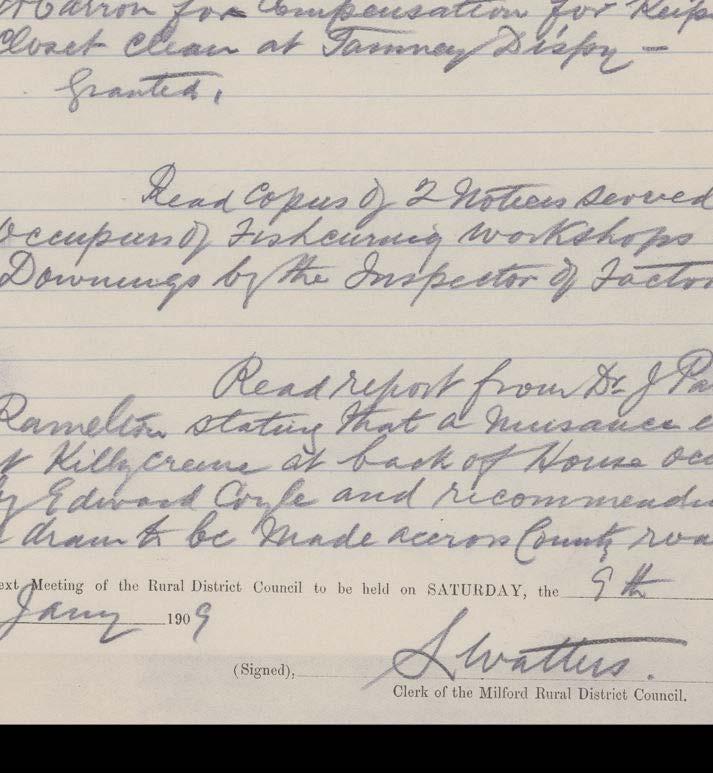 McCarron for Compensation for Keep
Closet clean at Tamney Dispy –
Granted.
Read Copies of 2 Notices served
Occupiers of Fishcuring Workshops
Downings by the Inspector of Factor
Read report from Dr J Pa
Ramelton stating that a nuisance e
at Killycreen at back of House occ
by Edward Coyle and recommendi
a drain to be Made across County roa
ext Meeting of the Rural District Council to be held on SATURDAY, the 9th
Jany 1909
(Signed), S Watters.
Clerk of the Milford Rural District Council.